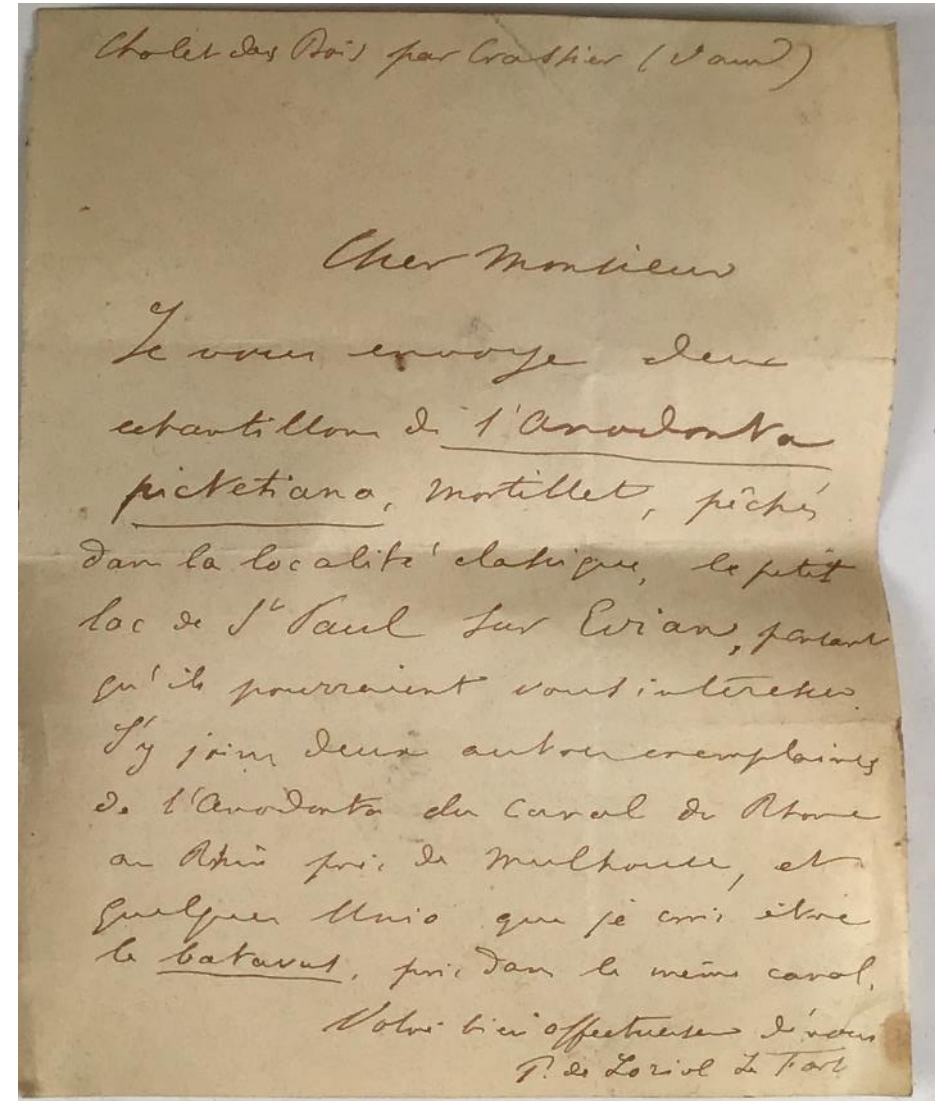 Chalet des Bois par Crassier (Vaud)
Cher Monsieur
Je vous envoye deux
echantillons de l'Anodonta
pictetiana, Mortillet, pêchés
dans la localité classique, le petit
lac de St Paul sur Evian, pensant
qu'ils pourraient vous intéresser.
J'y joins deux autres exemplaires
de l'Anodonta du Canal du Rhone
au Rhin près de Mulhouse, et
quelques Unio que je crois être
le batavus, pris dans le même canal.
Votre bien affectueusement dévoué
P. de Loriol Le Fort